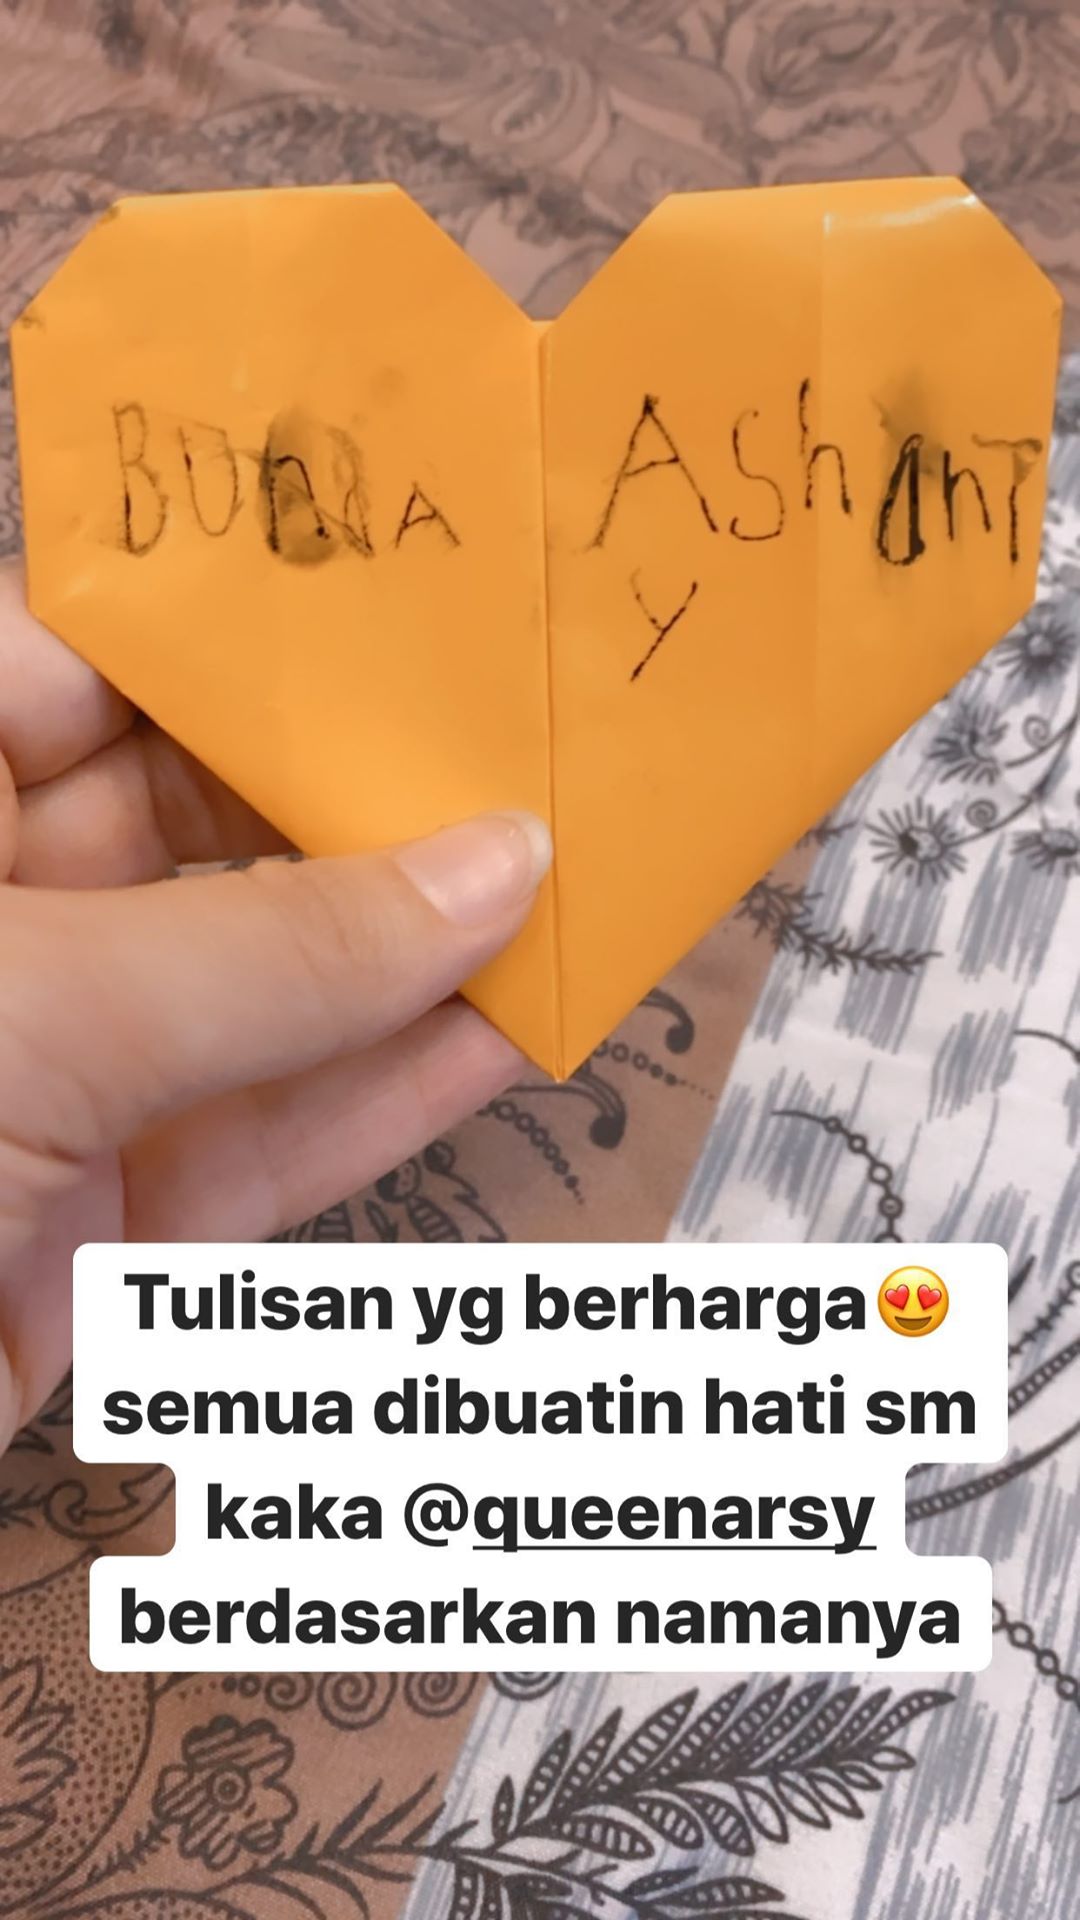 BUNDA
AShanT
y
Tulisan yg berharga😍
semua dibuatin hati sm
kaka @queenarsy
berdasarkan namanya